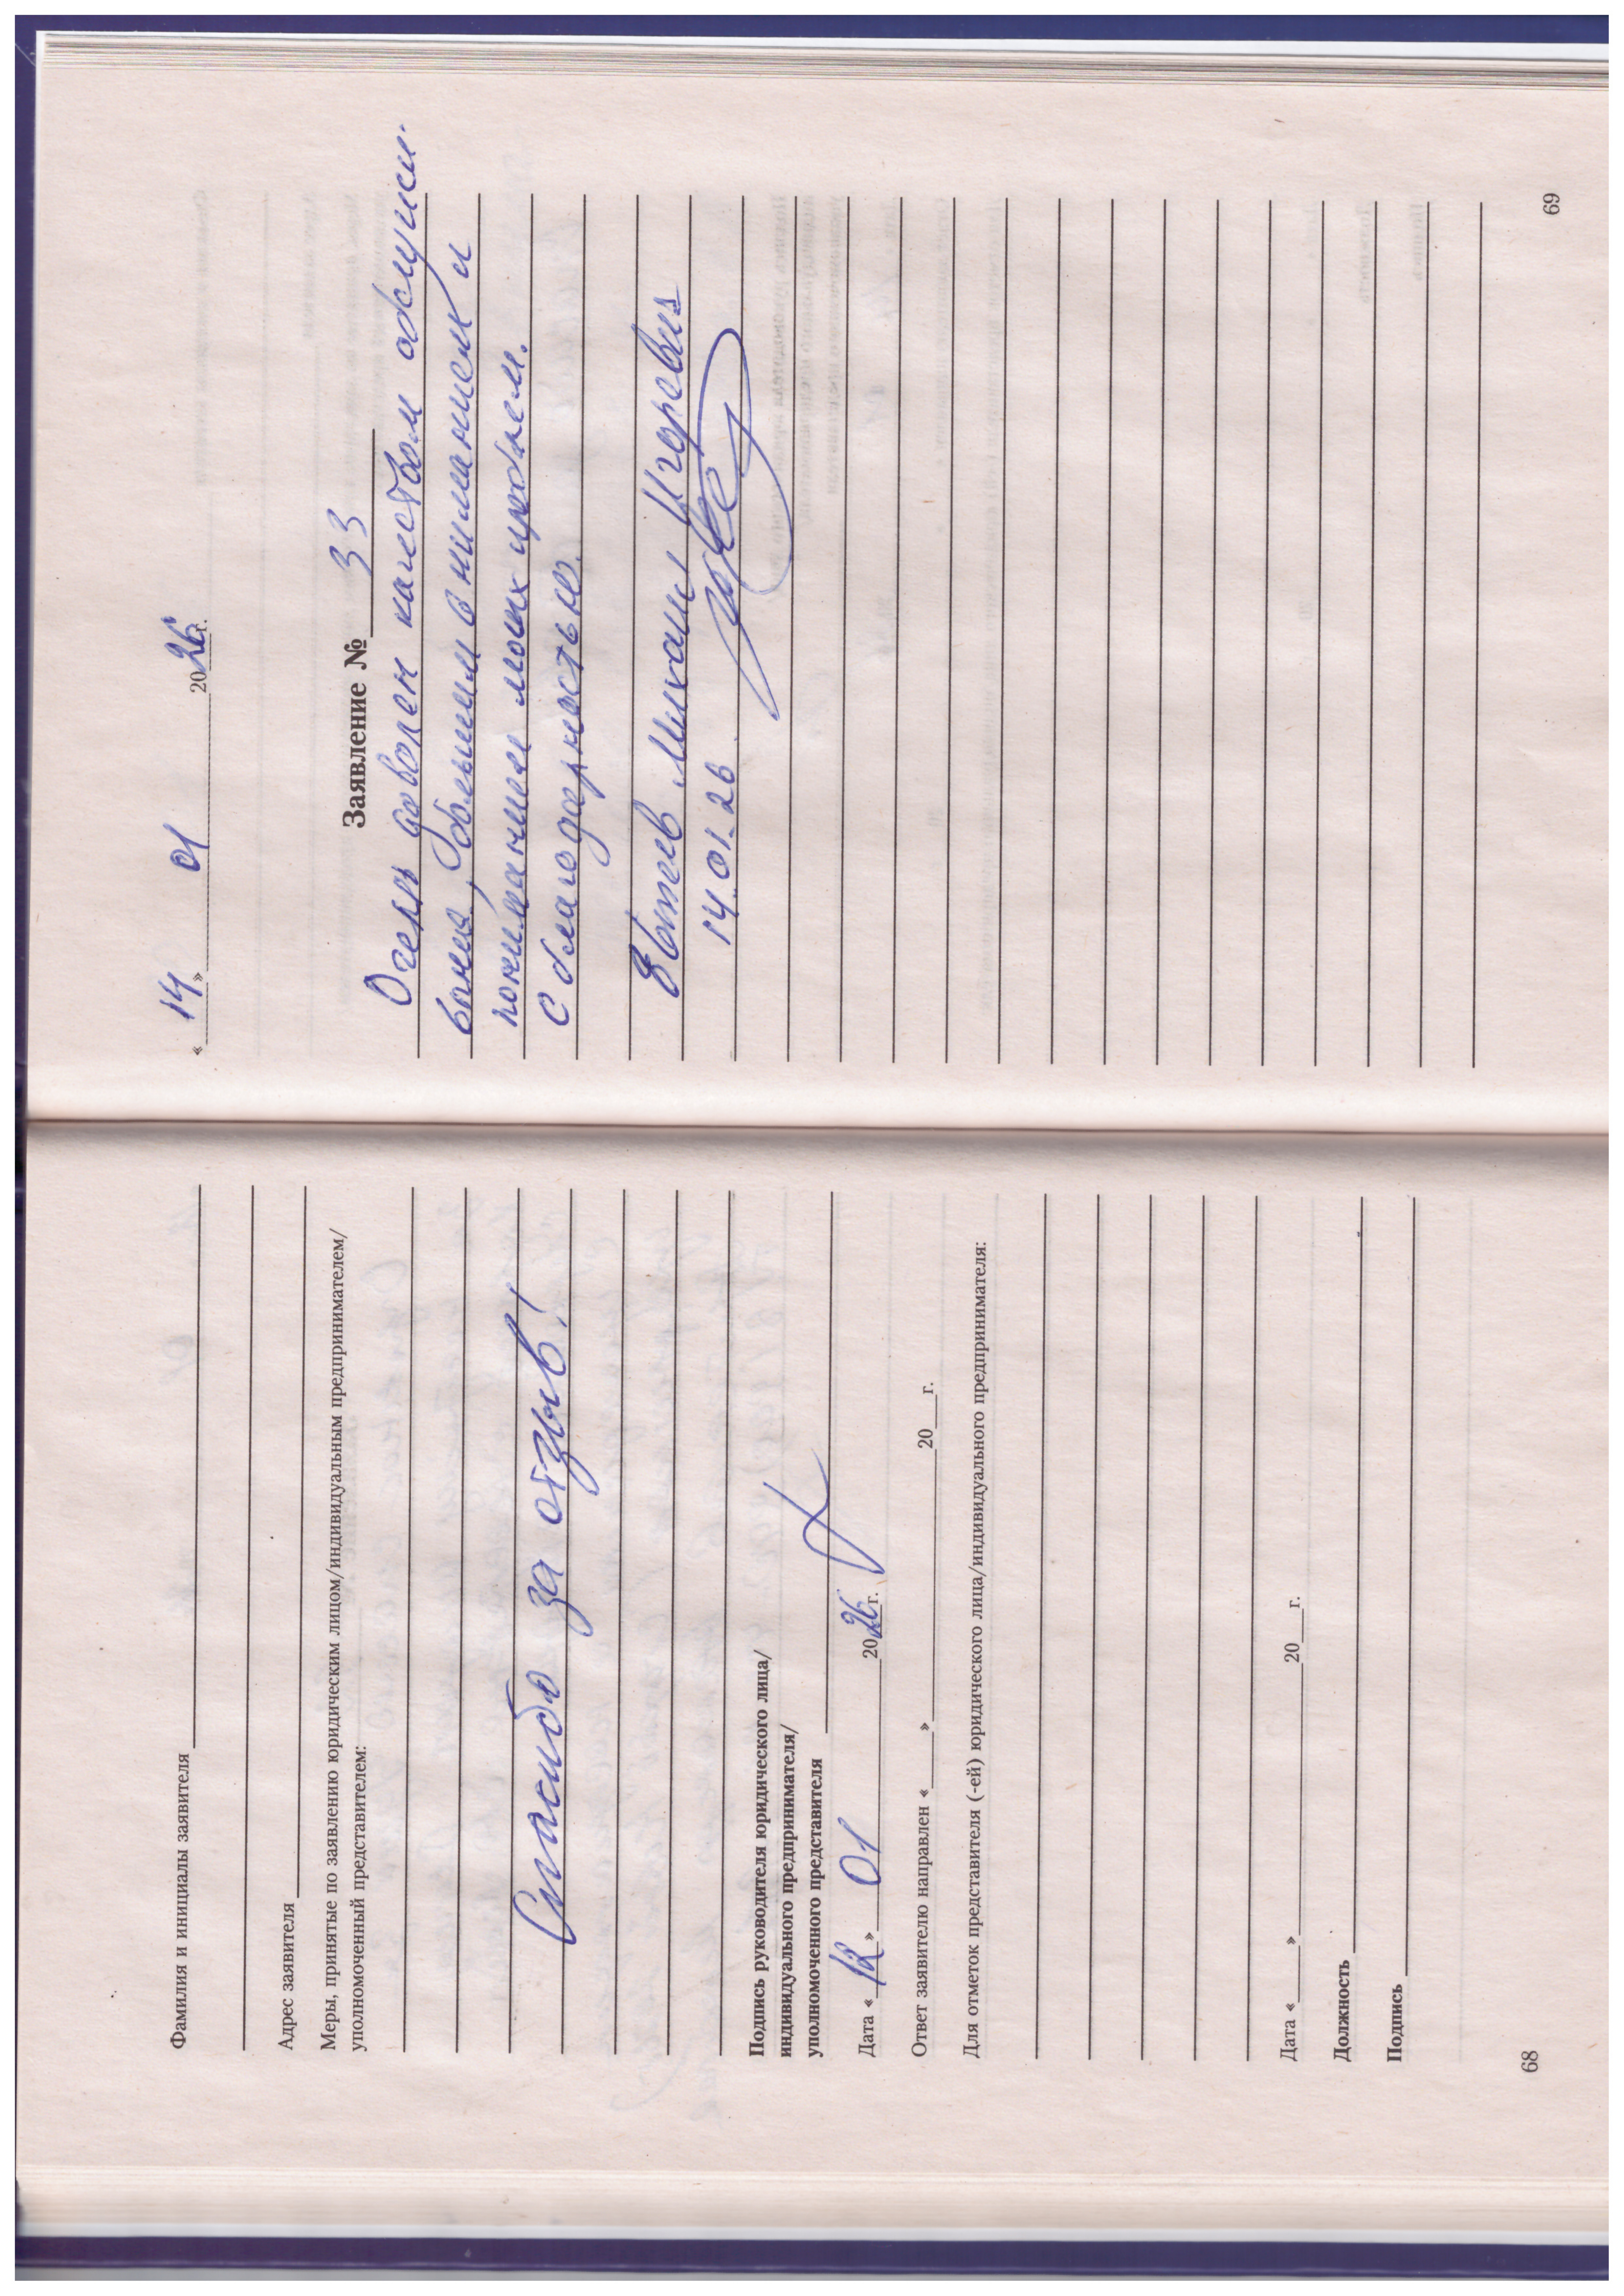 Фамилия и инициалы заявителя
Адрес заявителя
Меры, принятые по заявлению юридическим лицом/индивидуальным предпринимателем/
уполномоченный представителем:
Спасибо за отзыв!
Подпись руководителя юридического лица/
индивидуального предпринимателя/
уполномоченного представителя
Дата «12» 01 2026г.
Ответ заявителю направлен «____»____20__г.
Для отметок представителя (-ей) юридического лица/индивидуального предпринимателя:
Дата «____»____20__г.
Должность
Подпись
68
«14» 01 2026г.
Заявление № 33
Очень доволен качеством обслужи-
вания, большим вниманием и
пониманием моих проблем.
С благодарностью.
Михаил Игоревич
14.01.26
69